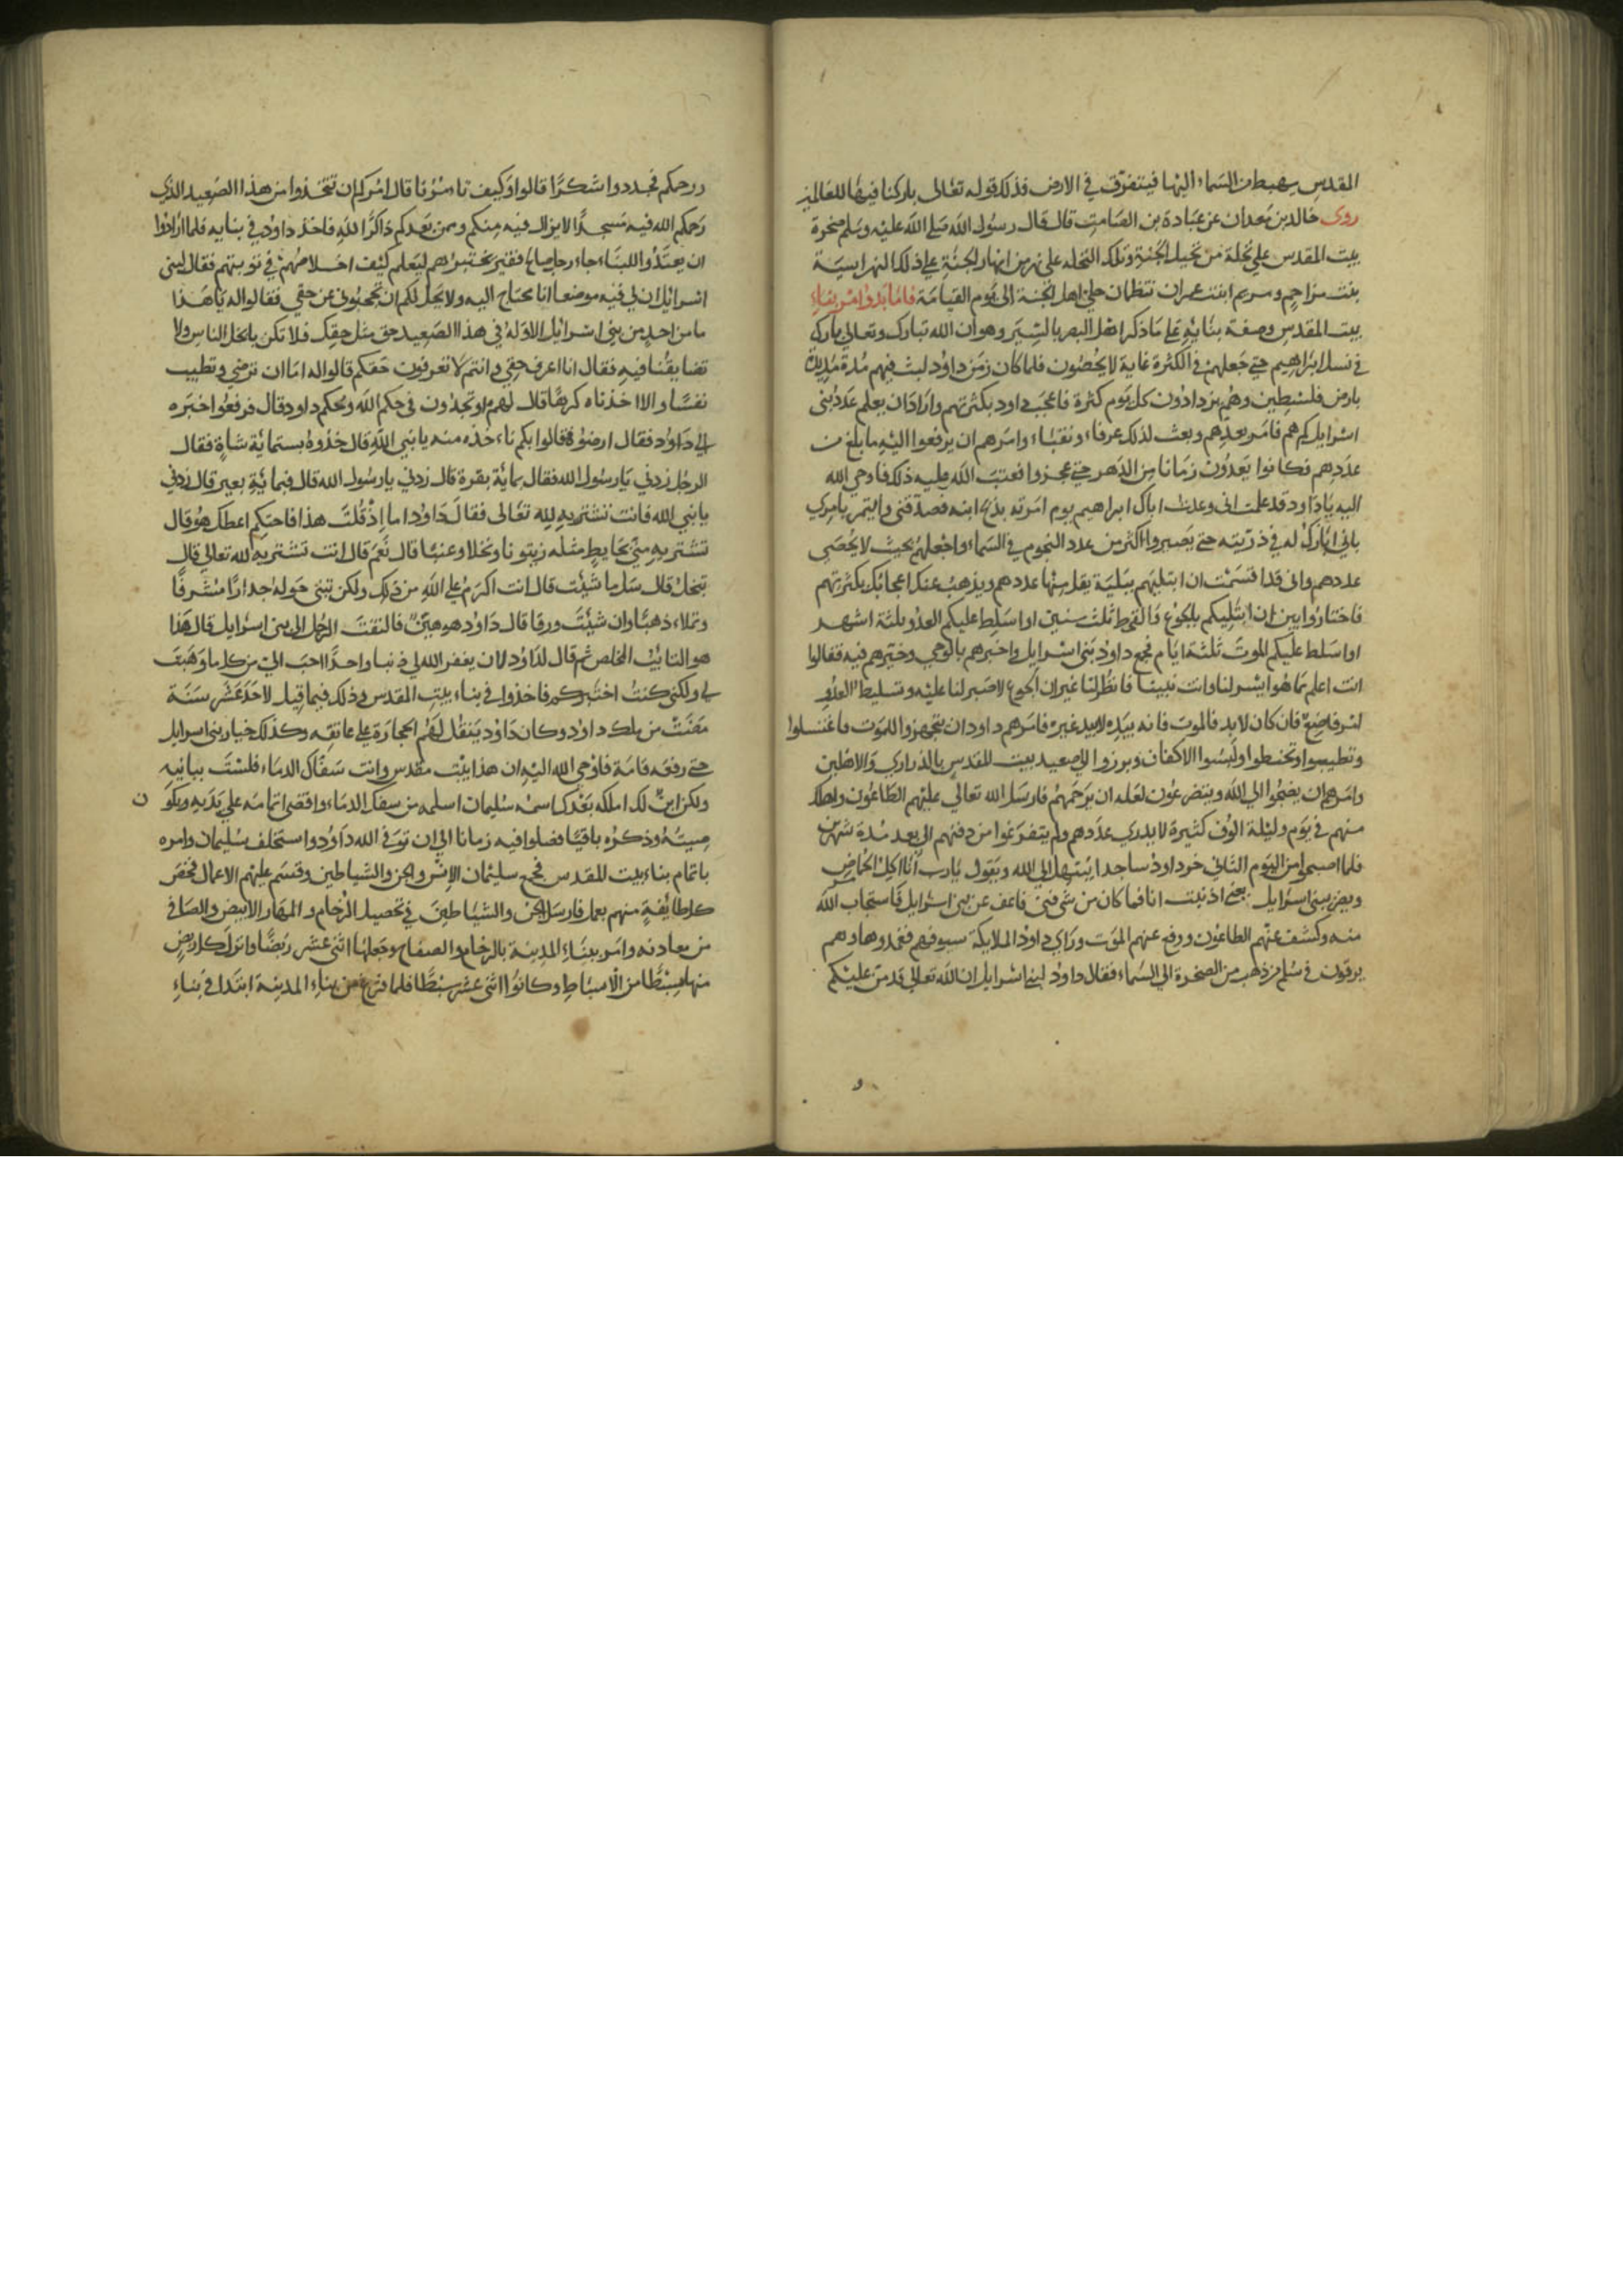 المقدس يهبط من السماء اليها فيتفرق في الارض فذلك قوله تعالى باركنا فيها للعالمين
روى خالد بن معدان عن عبادة بن الصامت قال قال رسول الله صلى الله عليه وسلم صخرة
بيت المقدس على نخلة من نخيل الجنة وتلك النخله على نهر من انهار الجنة على ذلك النهر اسية
بنت مزاحم ومريم ابنت عمران تنظمان حلى اهل الجنة الى يوم القيامة فاما بدوا امر بناء
بيت المقدس وصفة بنايه على ما ذكر اهل البصر بالسير وهو ان الله تبارك وتعالى بارك
في نسل ابراهيم حتى جعلهم في الكثرة غاية لا يحصون فلما كان زمن داود لبث فيهم مدة مديدة
بارض فلسطين وهم يزدادون كل يوم كثرة فاعجب داود بكثرتهم واراد ان يعلم عدد بنى
اسرايل كم هم فامر بعدهم وبعث لذلك عرفاء ونقباء وامرهم ان يرفعوا اليه ما بلغ من
عددهم فكانوا يعدون زمانا من الدهر حتى عجزوا فعتب الله عليه ذلك فاوحى الله
اليه ياداود قد علمت انى وعدت اباك ابراهيم يوم امرته بذبح ابنه فصدقنى وايتمر بامري
بانى ابارك له في ذريته حتى يصيروا اكثر من عدد النجوم في السماء واجعلهم بحيث لا يحصى
عددهم وانى قد اقسمت ان ابتليهم ببلية يقل منها عددهم ويذهب عنك اعجابك بكثرتهم
فاختاروا بين ان ابتليكم بالجوع والقحط ثلث سنين او اسلط عليكم العدو ثلثة اشهر
او اسلط عليكم الموت ثلثة ايام فجمع داود بنى اسرايل واخبرهم بالوحي وخيرهم فيه فقالوا
انت اعلم بما هو ايسر لنا وانت نبينا فانظر لنا غير ان الجوع لا صبر لنا عليه وتسليط العدو
امر فاضح فان كان لا بد فالموت فانه بيده لا بيد غيره فامرهم داود ان يتجهزوا للموت فاغتسلوا
وتطيبوا وتحنطوا ولبسوا الاكفان وبرزوا الى صعيد بيت المقدس بالذراري والاهلين
وامرهم ان يضجوا الى الله ويتضرعون لعله ان يرحمهم فارسل الله تعالى عليهم الطاعون واهلك
منهم في يوم وليلة الوف كثيرة لا يدرى عددهم ولم يتفرغوا من دفنهم الى بعد مدة شهرين
فلما اصبحوا من اليوم الثاني خر داود ساجدا يبتهل الى الله ويقول يارب انا اكل الحماض
وبنو اسرايل يضرسون يعني اذنبت انا فما كان من شي فمنى فاعف عن بنى اسرايل فاستجاب الله
منه وكشف عنهم الطاعون ورفع عنهم الموت وراى داود الملايكة سيوفهم فغمدوها وهم
يرقون في سلم من ذهب من الصخرة الى السماء فقال داود لبنى اسرايل ان الله تعالى قد من عليكم
ورحمكم فجددوا شكرا قالوا وكيف تامرنا قال امركم ان تتخذوا من هذا الصعيد الذي
رحمكم الله فيه مسجدا لا يزال فيه منكم وممن بعدكم ذاكرا لله فاخذ داود في بنايه فلما ارادوا
ان يبتدوا البناء جاء رجل صالح فقير يختبرهم ليعلم كيف اخلاصهم في توبتهم فقال لبنى
اسرايل ان لي فيه موضعا انا محتاج اليه ولا يحل لكم ان تحجبونى عن حقى فقالوا له ياهذا
ما من احد من بنى اسرايل الا وله في هذا الصعيد حق مثل حقك فلا تكن ابخل الناس ولا
تضايقنا فيه فقال انا اعرف حقى وانتم لا تعرفون حقكم قالوا له اما ان ترضى وتطيب
نفسا والا اخذناه كرها قال لهم اوتجدون في حكم الله وحكم داود قال فرفعوا خبره
الى داود فقال ارضوه فقالوا بكم ناخذه منه يانبي الله قال خذوه بسماية شاة فقال
الرجل زدني يارسول الله فقال بماية بقرة قال زدني يارسول الله قال فبماية بعير قال زدني
يانبي الله فانت تشتريه لله تعالى فقال داود اما اذ قلت هذا فاحتكم اعطك هو قال
تشتريه منى بحايط مثله زيتونا ونخلا وعنبا قال نعم قال انت تشتريه لله تعالى فلا
تبخل قال سل ما شيت قال انت اكرم على الله من ذلك ولكن تبنى حوله جدارا مشرفا
وتملاء ذهبا وان شيت ورقا قال داود هو هين فالتفت الرجل الى بنى اسرايل قال هذا
هو التايب المخلص ثم قال لداود لان يغفر الله لي ذنبا واحدا احب الي من كل ما وهبت
لى ولكنى كنت اختبركم فاخذوا في بناء بيت المقدس وذلك فيما قيل لاحد عشر سنة
مضت من ملك داود وكان داود ينقل لهم الحجارة على عاتقه وكذلك خيار بنى اسرايل
حتى رفعه قامة فاوحى الله اليه ان هذا بيت مقدس وانت سفاك الدماء فلست ببانيه
ولكن ابن لك املكه بعدك اسمه سليمان اسلمه من سفك الدماء واقضى اتمامه على يديه ويكون
صيته وذكره باقيا فصلوا فيه زمانا الى ان توفى الله داود واستخلف سليمان وامره
باتمام بناء بيت المقدس فجمع سليمان الانس والجن والشياطين وقسم عليهم الاعمال فخص
كل طايفة منهم بعمل فارسل الجن والشياطين في تحصيل الرخام والمها والابيض والصافى
من معادنه وامر ببناء المدينة بالرخام والصفاح وجعلها اثنى عشر ربضا وانزل كل ربض
منها سبطا من الاسباط وكانوا اثنى عشر سبطا فلما فرغ من بناء المدينة ابتدا في بناء